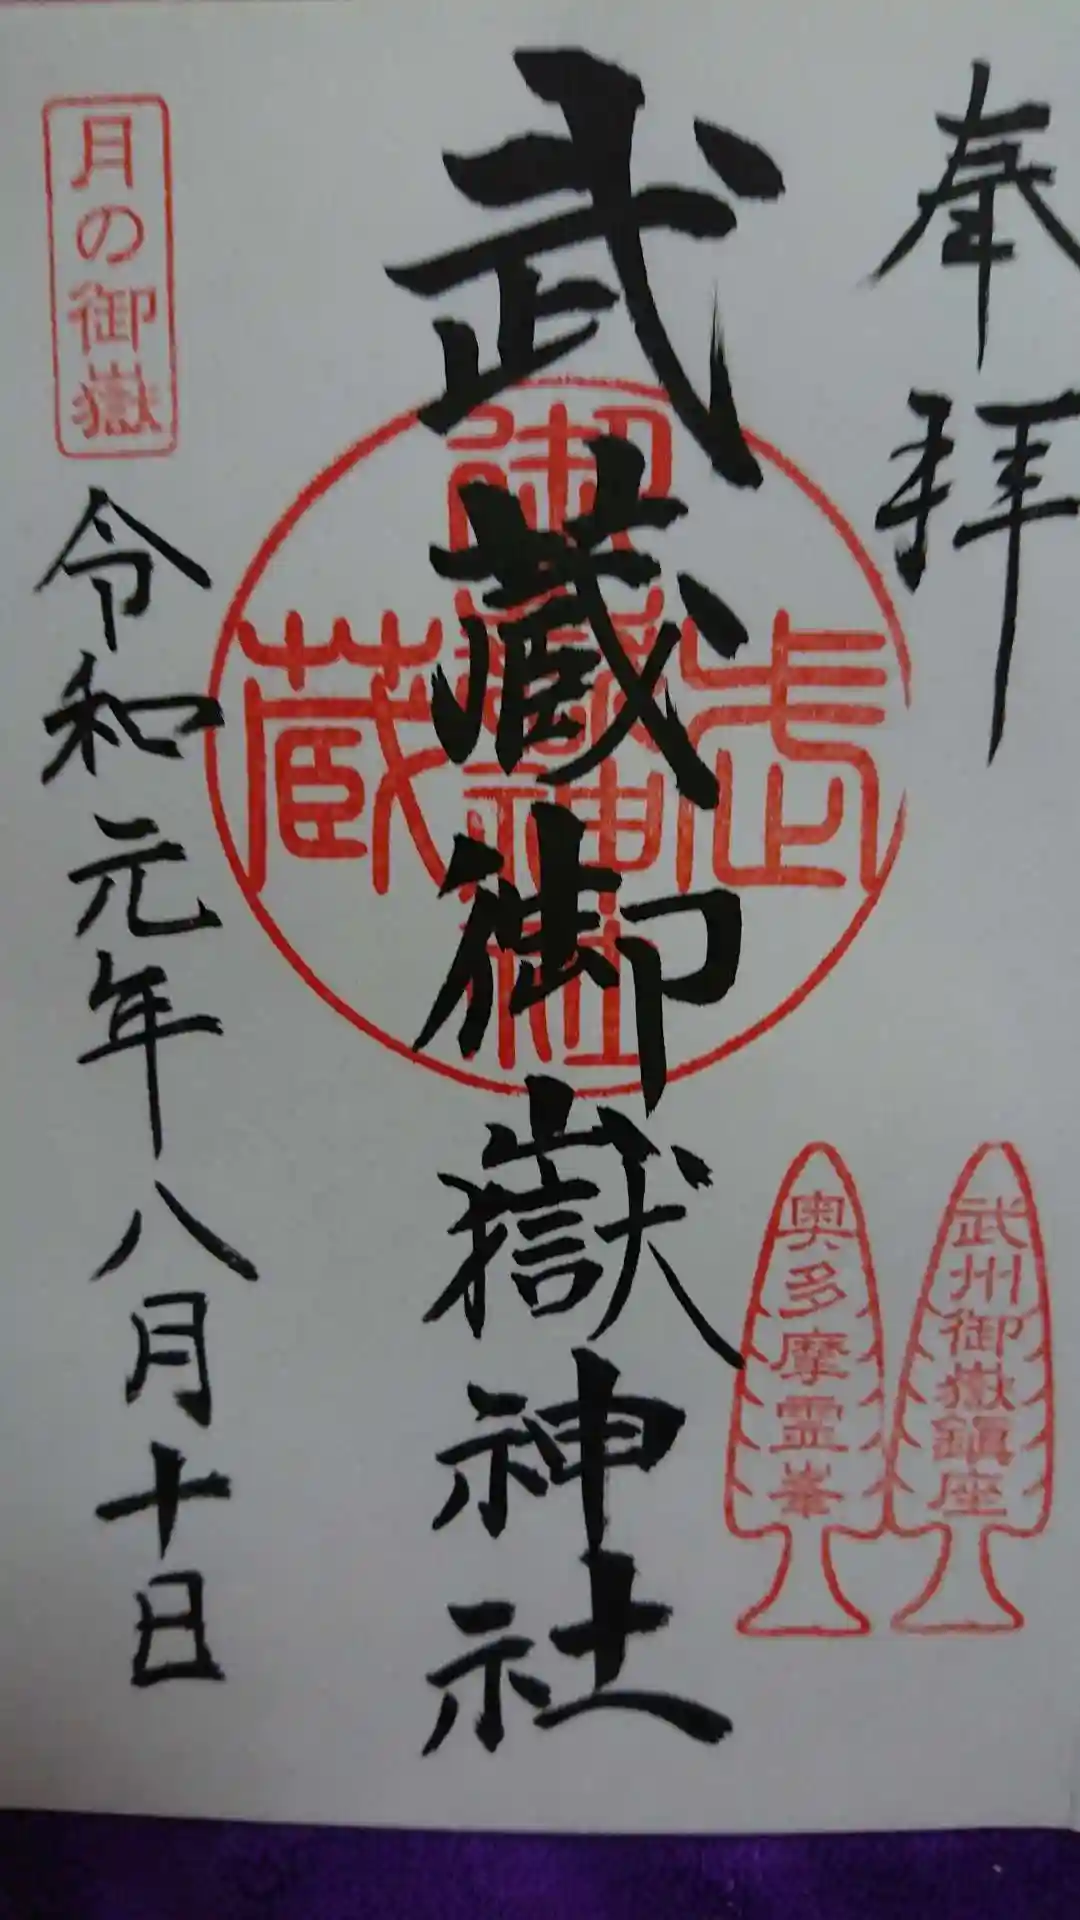 奉拝
武州御嶽鎮座
奥多摩霊峯
武蔵御嶽神社
武蔵
御嶽神社
月の御嶽
令和元年八月十日